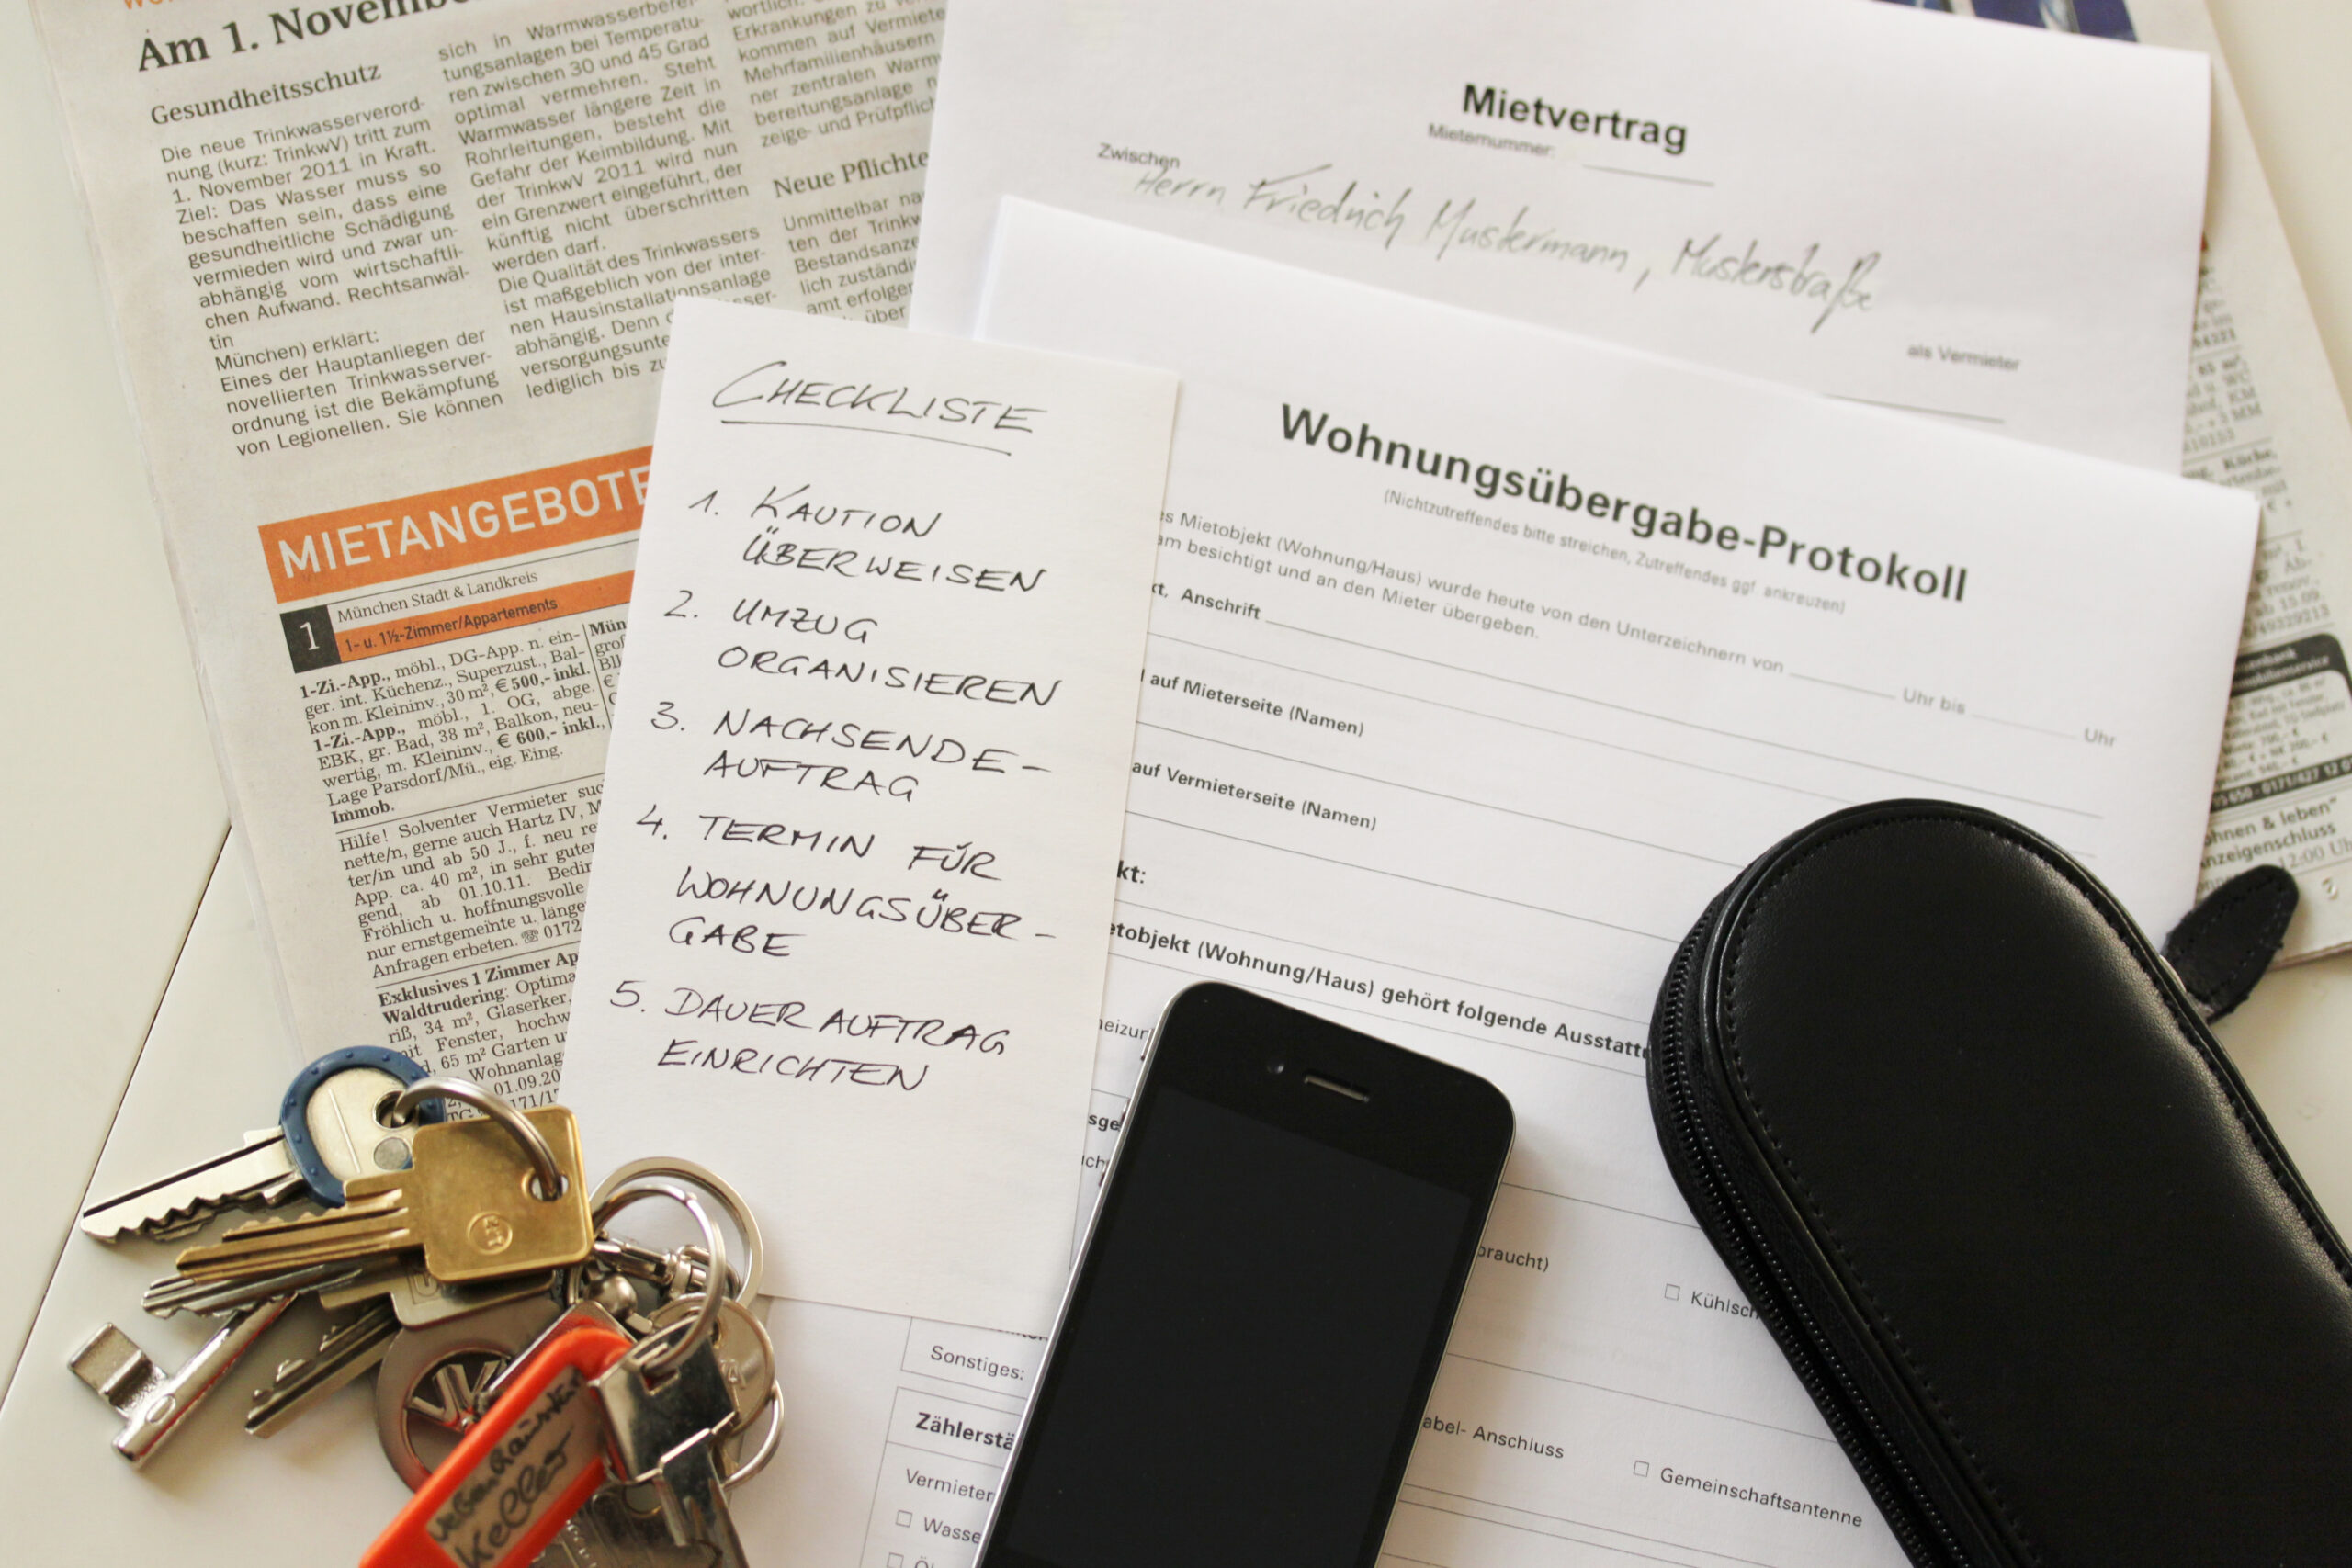 Am 1. Novembe
Gesundheitsschutz
Die neue Trinkwasserverord-
nung (kurz: TrinkwV) tritt zum
1. November 2011 in Kraft.
Ziel: Das Wasser muss so
beschaffen sein, dass eine
gesundheitliche Schädigung
vermieden wird und zwar un-
abhängig vom wirtschaftli-
chen Aufwand. Rechtsanwäl-
tin
München) erklärt:
Eines der Hauptanliegen der
novellierten Trinkwasserver-
ordnung ist die Bekämpfung
von Legionellen. Sie können
sich in Warmwasserberei-
tungsanlagen bei Temperatu-
ren zwischen 30 und 45 Grad
optimal vermehren. Steht
Warmwasser längere Zeit in
Rohrleitungen, besteht die
Gefahr der Keimbildung. Mit
der TrinkwV 2011 wird nun
ein Grenzwert eingeführt, der
künftig nicht überschritten
werden darf.
Die Qualität des Trinkwassers
ist maßgeblich von der inter-
nen Hausinstallationsanlage
abhängig. Denn
versorgungsunte
lediglich bis zu
Erkrankungen zu
kommen auf Vermiete
Mehrfamilienhäusern
ner zentralen Warm
bereitungsanlage
zeige- und Prüfpflich
Neue Pflichte
Unmittelbar na
ten der Trinkw
Bestandsanze
lich zuständi
amt erfolgen
über
MIETANGEBOTE
1 München Stadt & Landkreis
1- u. 1½-Zimmer/Appartements
1-Zi.-App., möbl., DG-App. n. ein-
ger. int. Küchenz., Superzust., Bal-
kon m. Kleininv., 30 m², € 500,- inkl.
1-Zi.-App., möbl., 1. OG, abge.
EBK, gr. Bad, 38 m², Balkon, neu-
wertig, m. Kleininv., € 600,- inkl.,
Lage Parsdorf/Mü., eig. Eing.
Immob.
Hilfe! Solventer Vermieter suc
nette/n, gerne auch Hartz IV, M
ter/in und ab 50 J., f. neu re
App. ca. 40 m², in sehr guter
gend, ab 01.10.11. Bedin
Fröhlich u. hoffnungsvolle
nur ernstgemeinte u. länge
Anfragen erbeten. ☏ 0172
Exklusives 1 Zimmer Ap
Waldtrudering: Optima
riß, 34 m², Glaserker,
mit Fenster, hochw
65 m² Garten u
Wohnanlag
01.09.20
CHECKLISTE
1. KAUTION
ÜBERWEISEN
2. UMZUG
ORGANISIEREN
3. NACHSENDE-
AUFTRAG
4. TERMIN FÜR
WOHNUNGSÜBER-
GABE
5. DAUERAUFTRAG
EINRICHTEN
Mietvertrag
Mieternummer:
Zwischen
Herrn Friedrich Mustermann, Musterstraße
als Vermieter
Wohnungsübergabe-Protokoll
(Nichtzutreffendes bitte streichen, Zutreffendes ggf. ankreuzen)
s Mietobjekt (Wohnung/Haus) wurde heute von den Unterzeichnern von Uhr bis Uhr
am besichtigt und an den Mieter übergeben.
kt, Anschrift
auf Mieterseite (Namen)
auf Vermieterseite (Namen)
kt:
etobjekt (Wohnung/Haus) gehört folgende Ausstattu
heizun
braucht)
□ Kühlsch
Sonstiges:
abel- Anschluss
□ Gemeinschaftsantenne
Zählerstä
Vermieter
□ Wasse
□ Öl
Keller